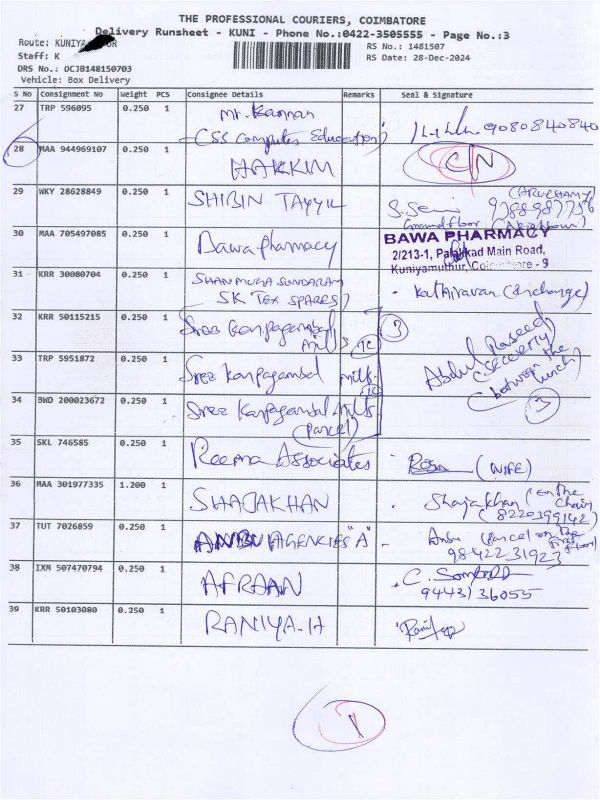 THE PROFESSIONAL COURIERS, COIMBATORE
Delivery Runsheet - KUNI - Phone No.:0422-3505555 - Page No.:3
Route: KUNIYA
RS No.: 1481507
Staff: K
RS Date: 28-Dec-2024
DRS No.: DCJB148150703
Vehicle: Box Delivery
S No Consignment No Weight PCS Consignee Details Remarks Seal & Signature
27 TRP 596095 0.250 1 Mr. Kannan
(CSS Computer Education) 9080840840
28 MAA 944969107 0.250 1 HAKKIM CN
29 WKY 28628849 0.250 1 SHIBIN TAYYIL
Ground floor
30 MAA 705497085 0.250 1 Bawa pharmacy
BAWA PHARMACY
2/213-1, Palakkad Main Road,
Kuniyamuthur, Coimbatore - 9
31 KRR 30080704 0.250 1 SHANMUGA SUNDARAM
SK Tex SPARES) - Kathiravan (Incharge)
32 KRR 50115215 0.250 1 Sree Kanpagambal
Mills 3
33 TRP 5951872 0.250 1 Sree Kanpagambal Mills
Abdul Raseed
(Security
between the
lunch)
3
34 BWD 200023672 0.250 1 Sree Kanpagambal Mills
(parcel)
35 SKL 746585 0.250 1 Reema Associates (WIFE)
36 MAA 301977335 1.200 1 SHAJAKHAN - Shajakhan (on the
Chair)
(8220399142)
37 TUT 7026859 0.250 1 ANBU AGENCIES "A" - Anbu (parcel on the
first floor)
98422 31923
38 IXM 507470794 0.250 1 AFRAAN
94431 36055
39 KRR 50103080 0.250 1 RANIYA.H